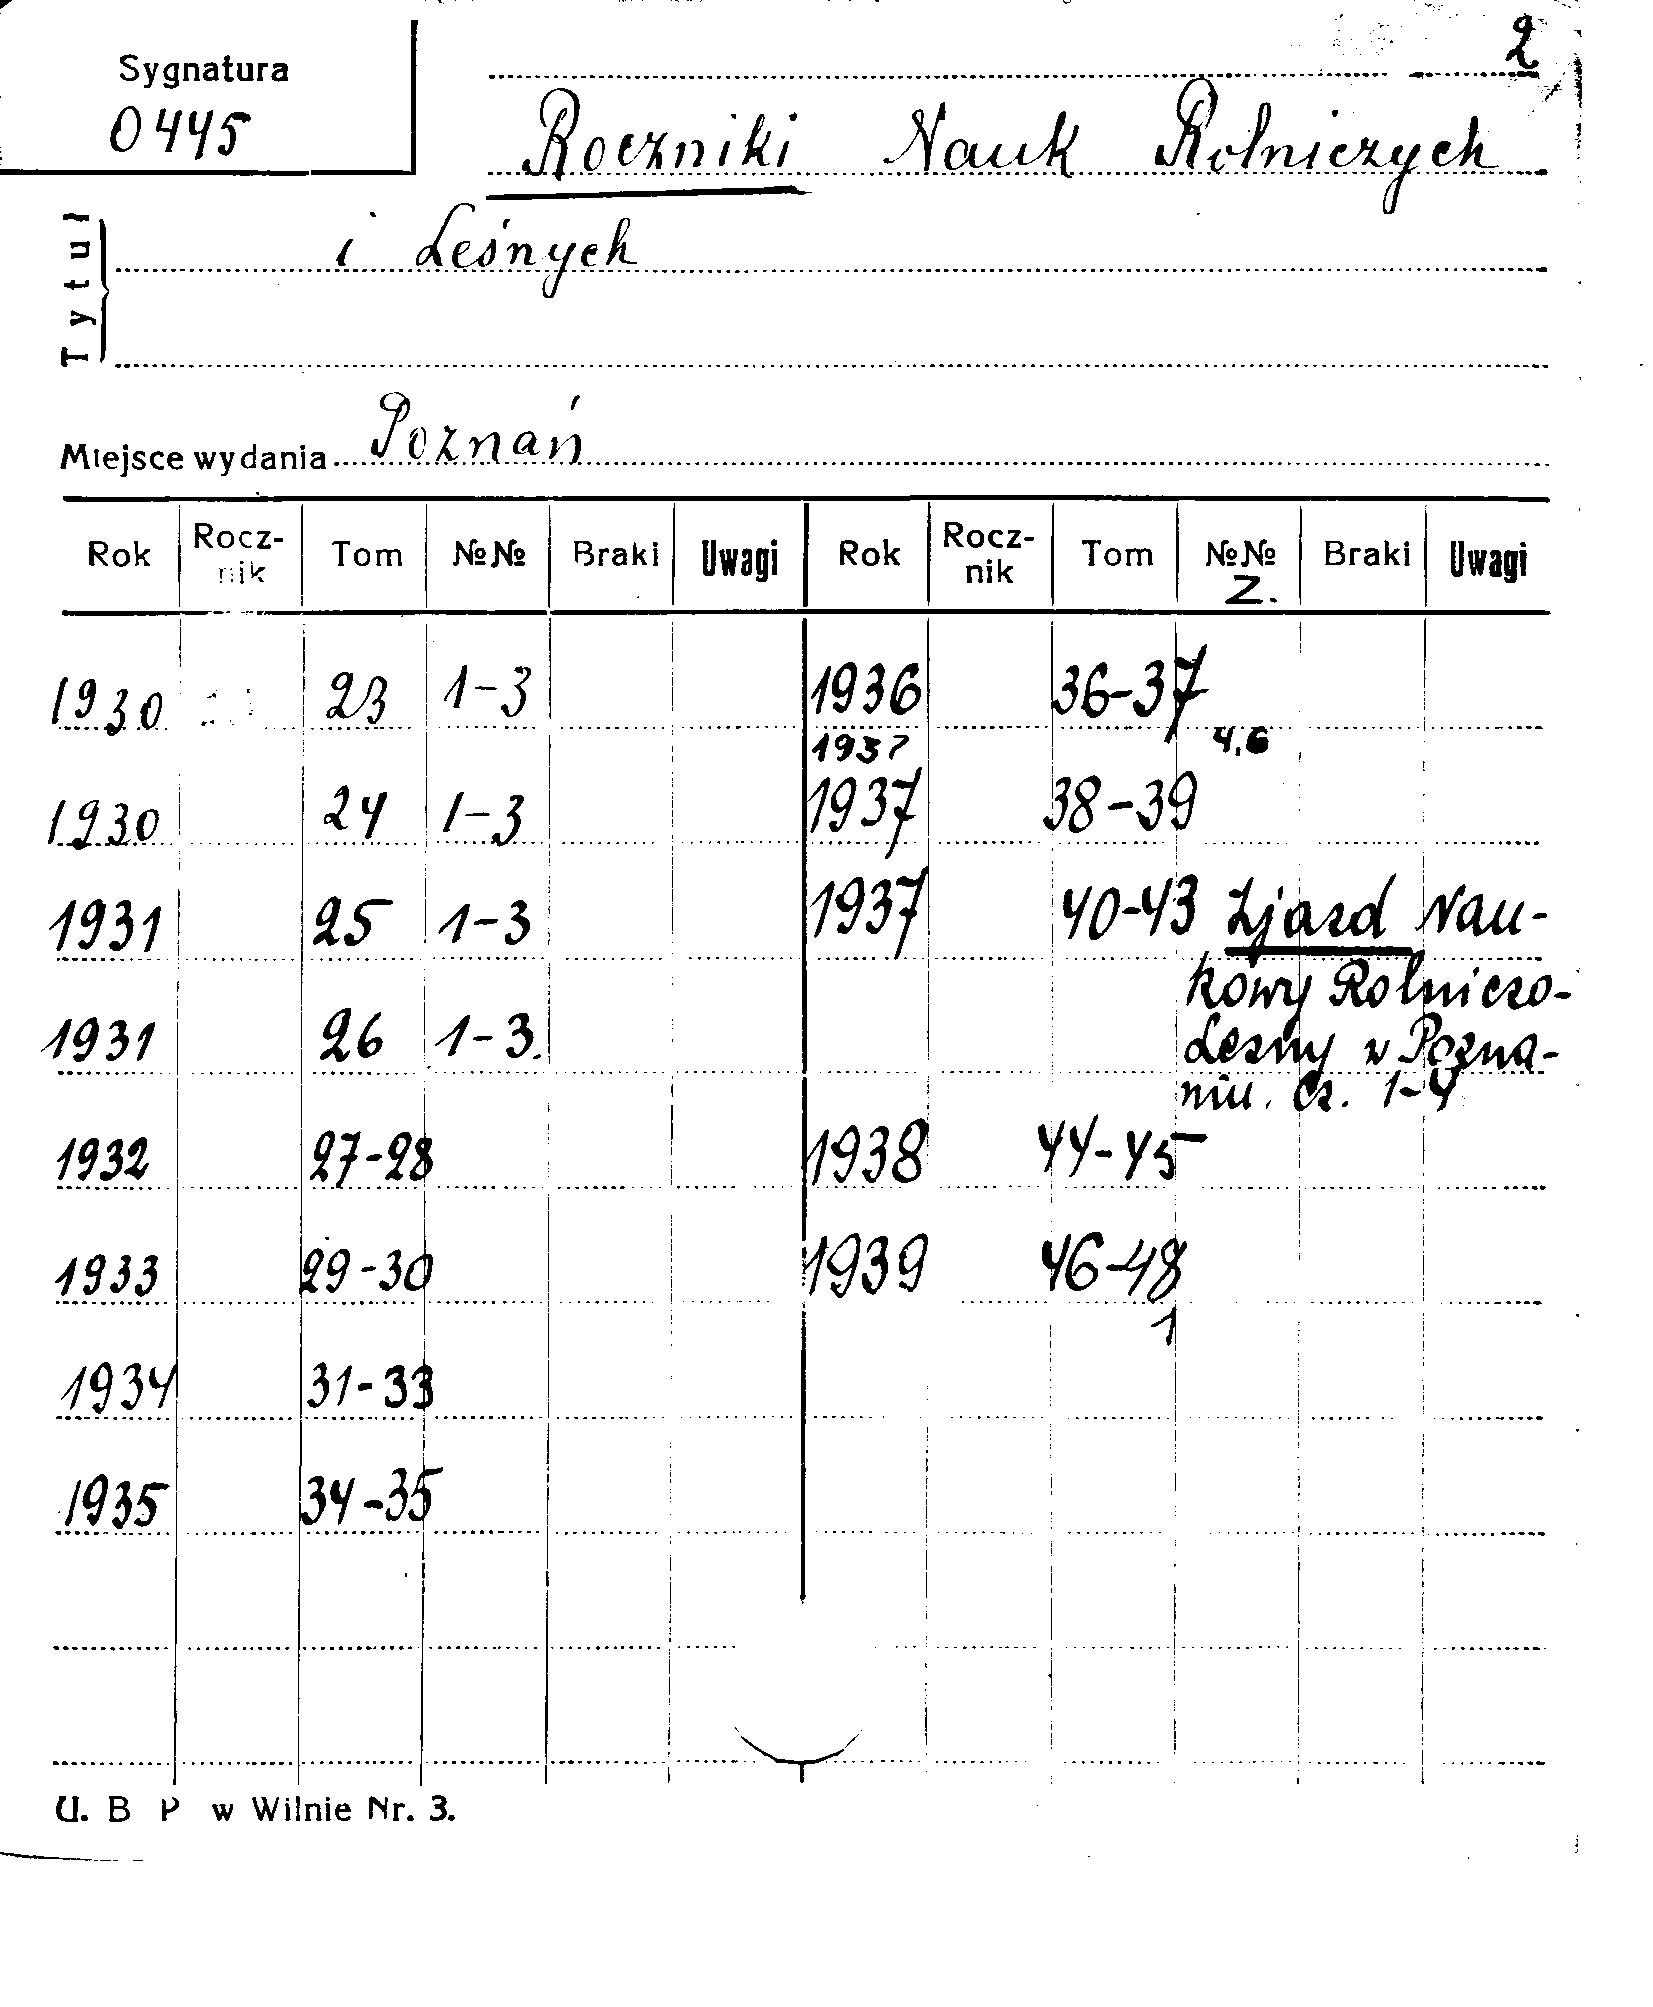 2
Sygnatura
0445
Roczniki Nauk Rolniczych
i Leśnych
Tytuł
Miejsce wydania Poznań
Rok Rocz-nik Tom №№ Braki Uwagi Rok Rocz-nik Tom №№ Z. Braki Uwagi
1930 23 1-3 1936 36-37
1937 4,6
1930 24 1-3 1937 38-39
1931 25 1-3 1937 40-43 Zjazd Nau-
kowy Rolniczo-
1931 26 1-3. Leśny w Pozna-
niu. Cz. 1-4
1932 27-28 1938 44-45
1933 29-30 1939 46-48
1
1934 31-33
1935 34-35
U. B P w Wilnie Nr. 3.